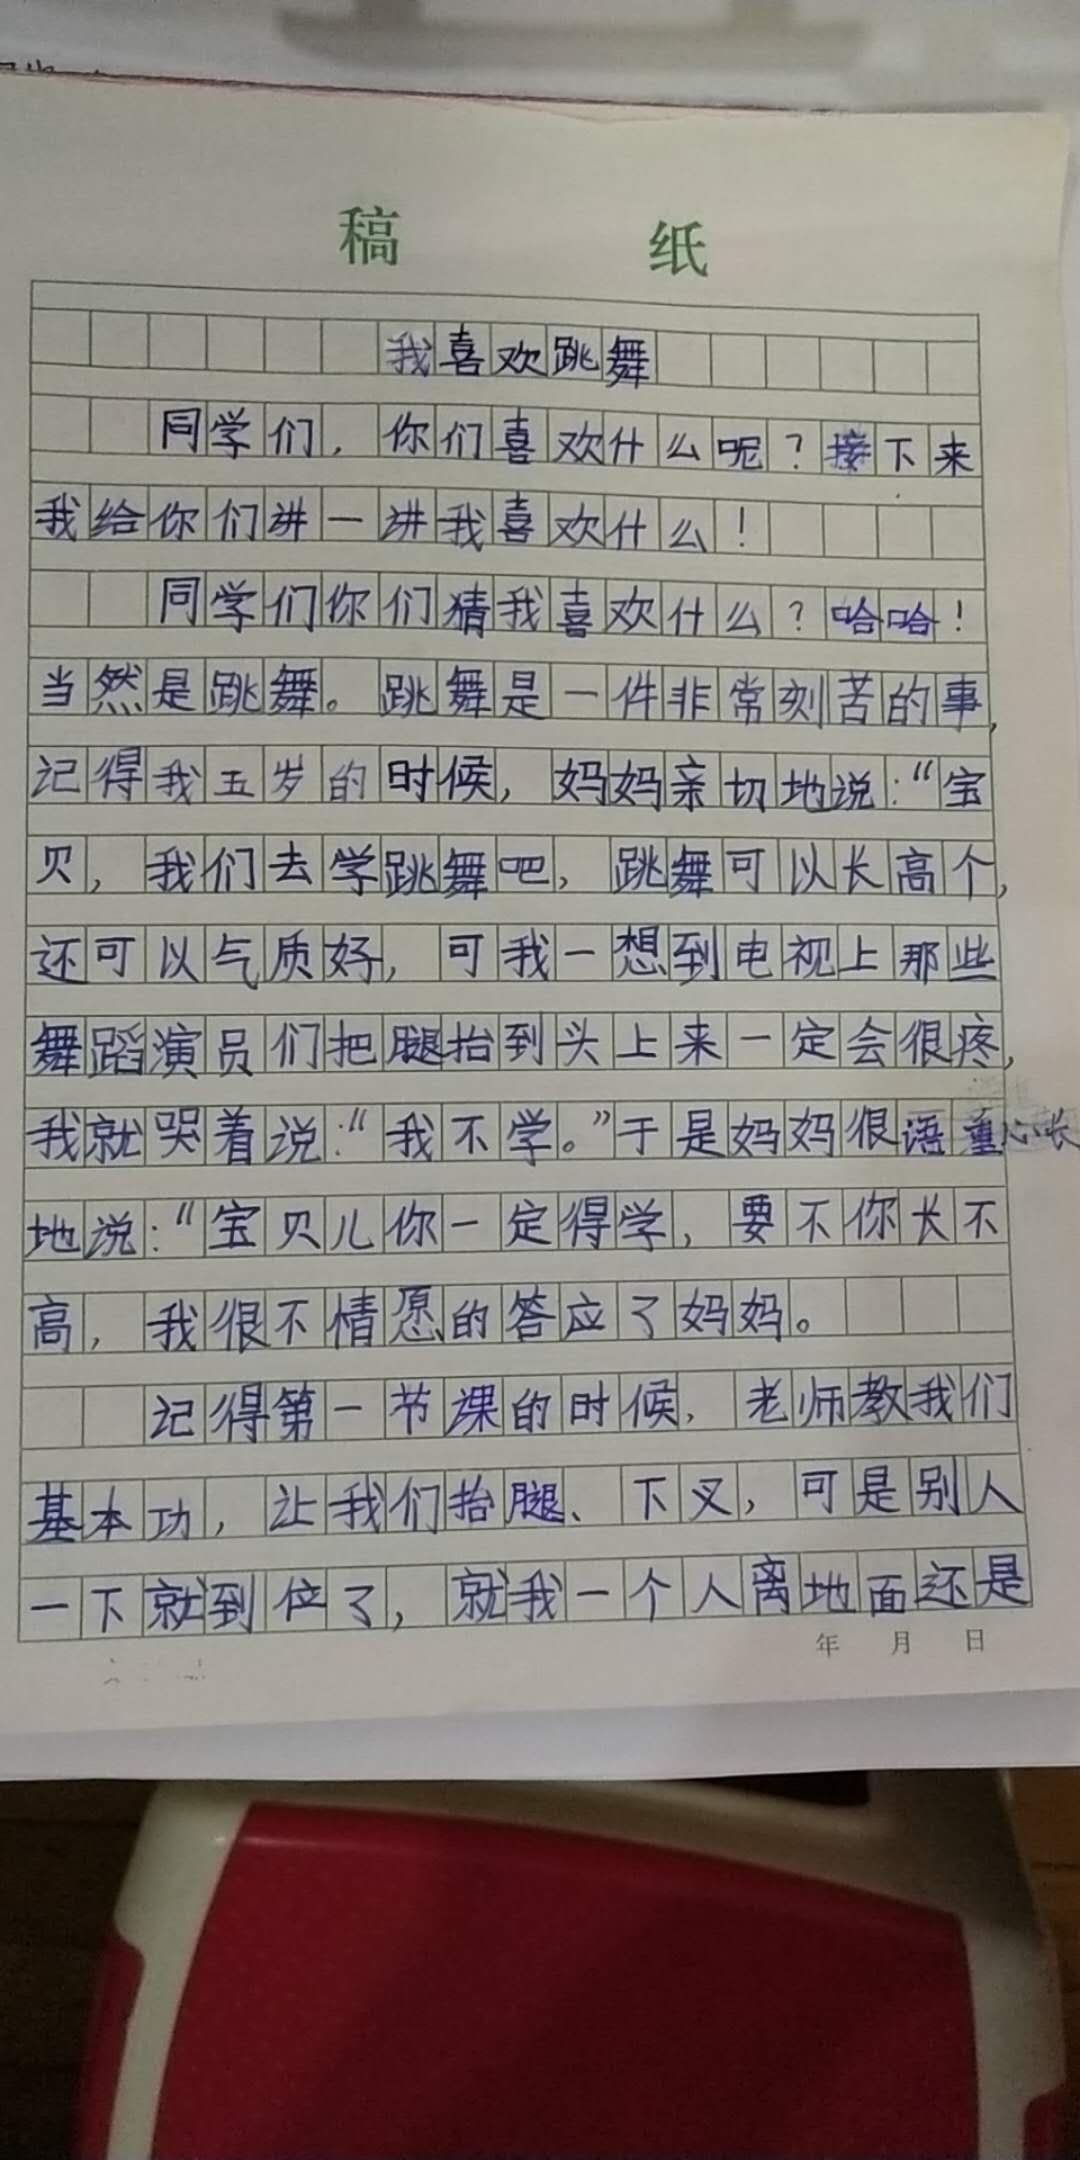 稿 纸
我喜欢跳舞
同学们，你们喜欢什么呢？接下来
我给你们讲一讲我喜欢什么！
同学们你们猜我喜欢什么？哈哈！
当然是跳舞。跳舞是一件非常刻苦的事，
记得我五岁的时候，妈妈亲切地说：“宝
贝，我们去学跳舞吧，跳舞可以长高个，
还可以气质好，可我一想到电视上那些
舞蹈演员们把腿抬到头上来一定会很疼，
我就哭着说：“我不学。”于是妈妈很语重心长
地说：“宝贝儿你一定得学，要不你长不
高，我很不情愿的答应了妈妈。
记得第一节课的时候，老师教我们
基本功，让我们抬腿、下叉，可是别人
一下就到位了，就我一个人离地面还是
年 月 日